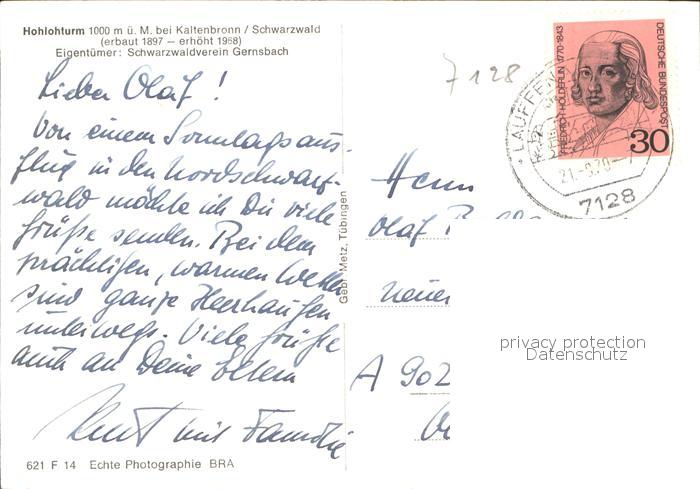 Hohlohturm 1000 m ü. M. bei Kaltenbronn / Schwarzwald
(erbaut 1897 – erhöht 1968)
Eigentümer: Schwarzwaldverein Gernsbach
Lieber Olaf!
Von einem Sonntagsaus-
flug in den Nordschwarz-
wald möchte ich Dir viele
Grüße senden. Bei dem
prächtigen, warmen Wetter
sind ganze Heerhaufen
unterwegs. Viele Grüße
auch an Deine Eltern
Kurt mit Familie
621 F 14 Echte Photographie BRA
Gebr. Metz, Tübingen
7128
DEUTSCHE BUNDESPOST
FRIEDRICH HÖLDERLIN 1770-1843
30
LAUFFEN
7128
Herrn
Olaf
A 902
privacy protection
Datenschutz